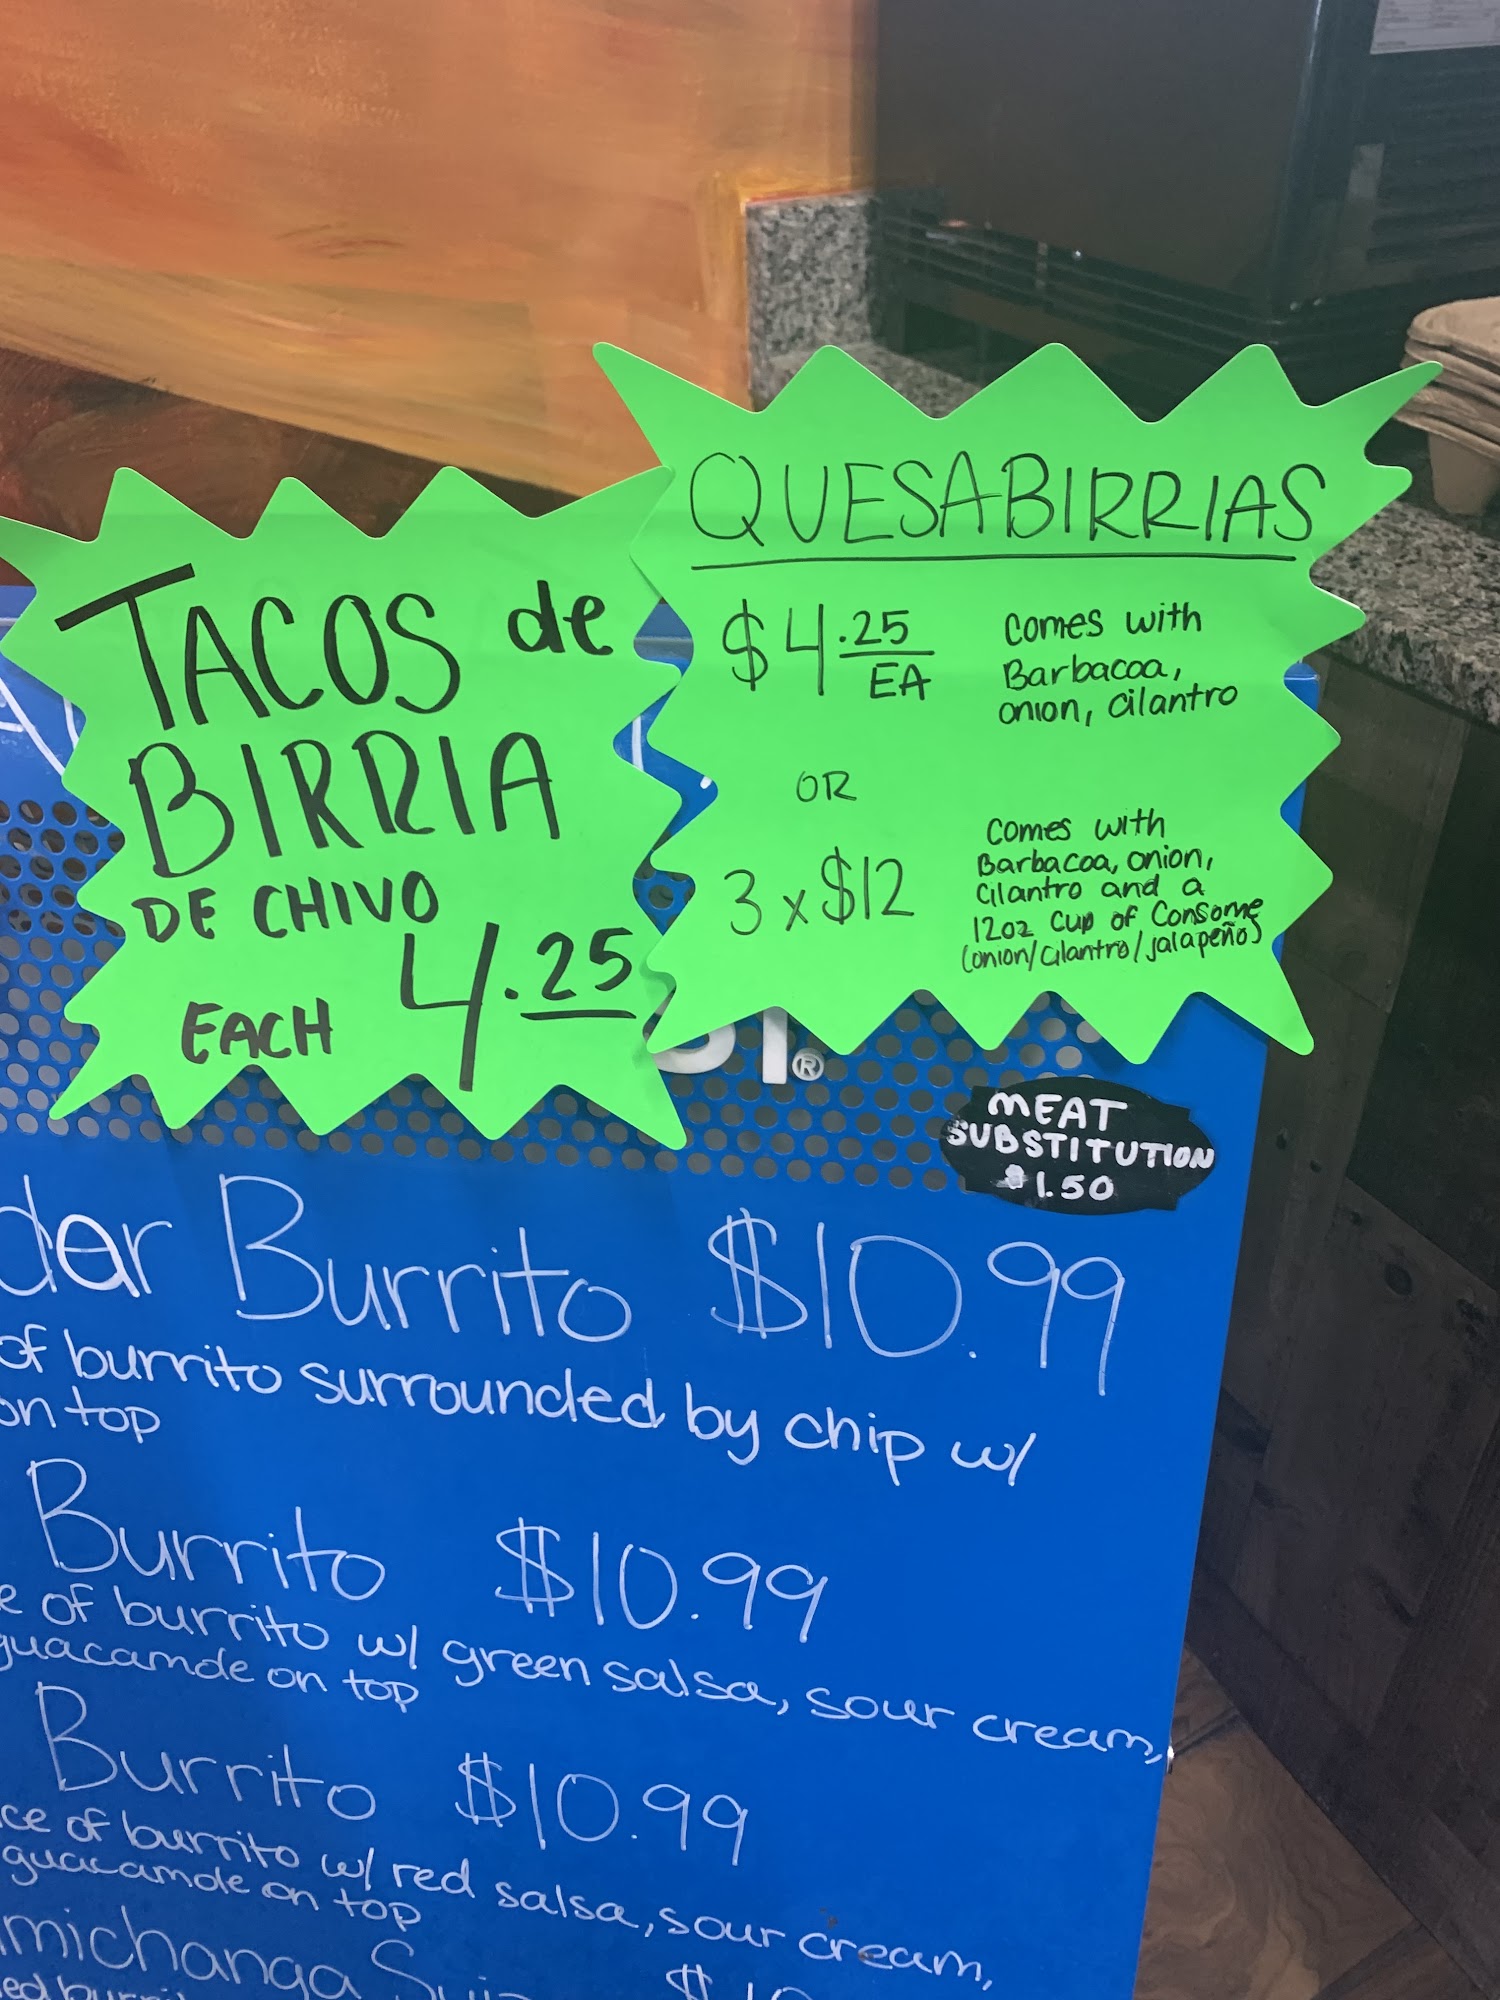 TACOS de
BIRRIA
DE CHIVO
EACH 4.25
QUESABIRRIAS
$4.25
EA
Comes with
Barbacoa,
onion, cilantro
OR
3 x $12
Comes with
Barbacoa, onion,
Cilantro and a
12oz cup of Consome
(onion/cilantro/jalapeños)
SI®
MEAT
SUBSTITUTION
$1.50
Burrito $10.99
of burrito surrounded by chip w/
on top
Burrito $10.99
of burrito w/ green salsa, sour cream,
guacamole on top
Burrito $10.99
of burrito w/ red salsa, sour cream,
guacamole on top
michanga